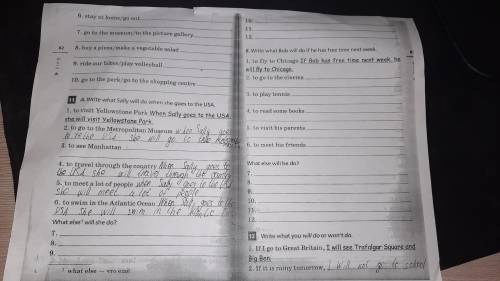 6. stay at home/go out
7. go to the museum/to the picture gallery
8. buy a pizza/make a vegetable salad
9. ride our bikes/play volleyball
10. go to the park/go to the shopping centre
82
11 A. Write what Sally will do when she goes to the USA.
1. to visit Yellowstone Park When Sally goes to the USA,
she will visit Yellowstone Park.
2. to go to the Metropolitan Museum when Sally goes
to the USA she will go to the
3. to see Manhattan
4. to travel through the country When Sally goes to
the USA she will travel through the country
5. to meet a lot of people when Sally goes to the USA
she will meet a lot of people
6. to swim in the Atlantic Ocean When Sally goes to the
USA she will swim in the
What else¹ will she do?
7.
8.
9.
¹ what else — что ещё
10.
11.
12.
B. Write what Bob will do if he has free time next week.
1. to fly to Chicago If Bob has free time next week, he
will fly to Chicago.
2. to go to the cinema
3. to play tennis
4. to read some books
5. to visit his parents
6. to meet his friends
What else will he do?
7.
8.
9.
10.
11.
12.
12 Write what you will do or won't do.
1. If I go to Great Britain, I will see Trafalgar Square and
Big Ben.
2. If it is rainy tomorrow, I will not go to school